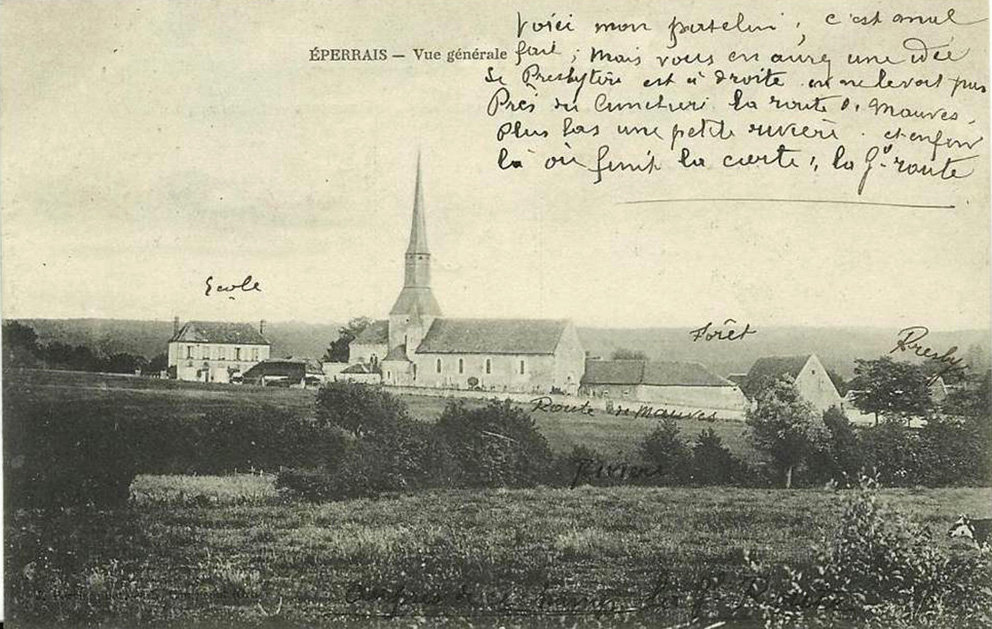 ÉPERRAIS — Vue générale
Voici mon patelin, c'est mal
fait; mais vous en aurez une idée
Le Presbytère est à droite on ne le voit pas
Près du Cimetière la route de Mauves.
Plus bas une petite rivière. et enfin
là où finit la carte, la Gde route
Ecole
Forêt
Presby
Route de Mauves
Rivière
la Gde Route